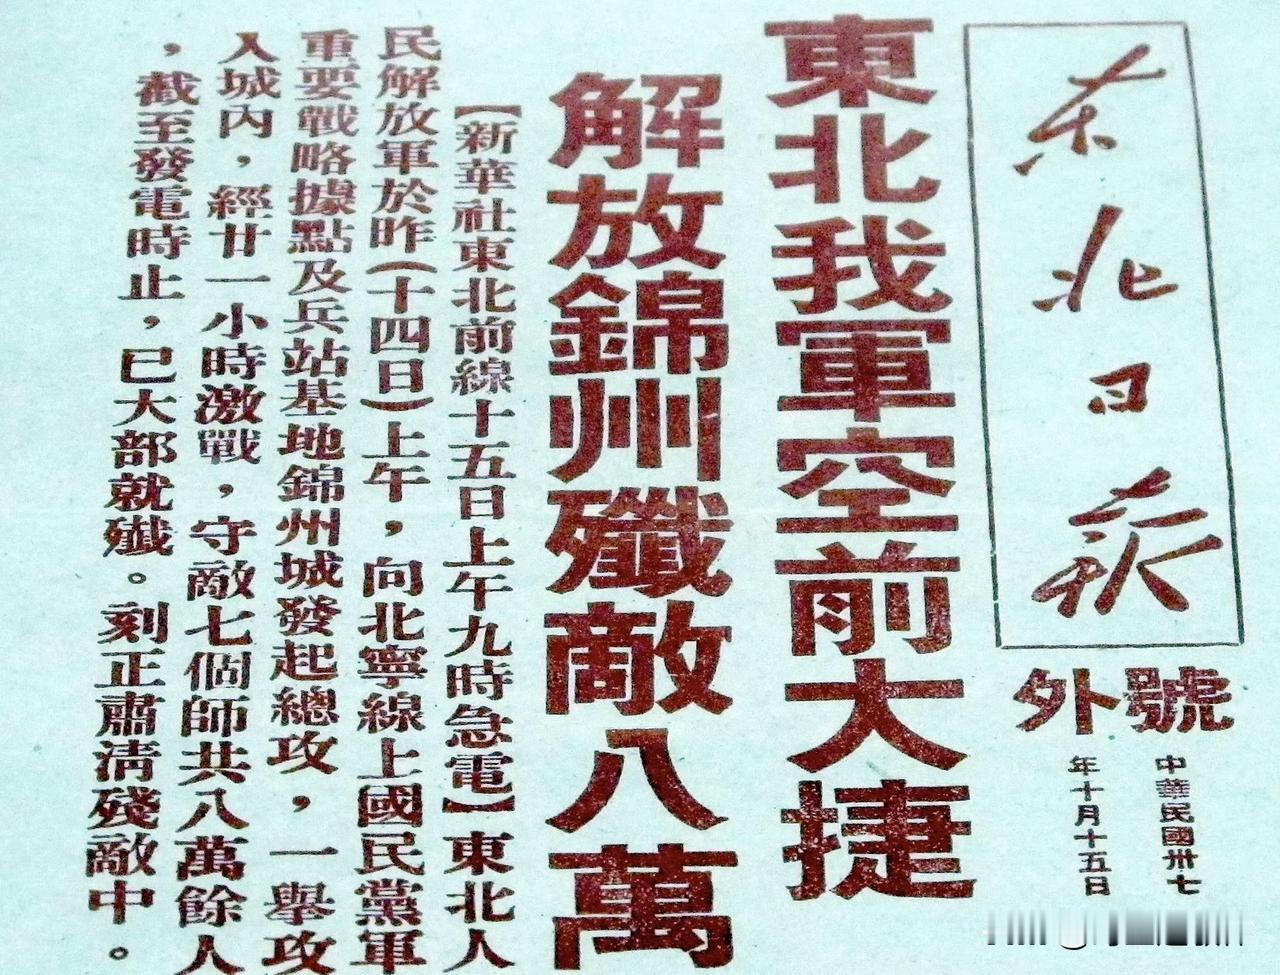 东北日报
號外
中華民國卅七
年十月十五日
東北我軍空前大捷
解放錦州殲敵八萬
【新華社東北前線十五日上午九時急電】東北人
民解放軍於昨(十四日)上午，向北寧線上國民黨軍
重要戰略據點及兵站基地錦州城發起總攻，一舉攻
入城內，經廿一小時激戰，守敵七個師共八萬餘人
，截至發電時止，已大部就殲。刻正肅清殘敵中。